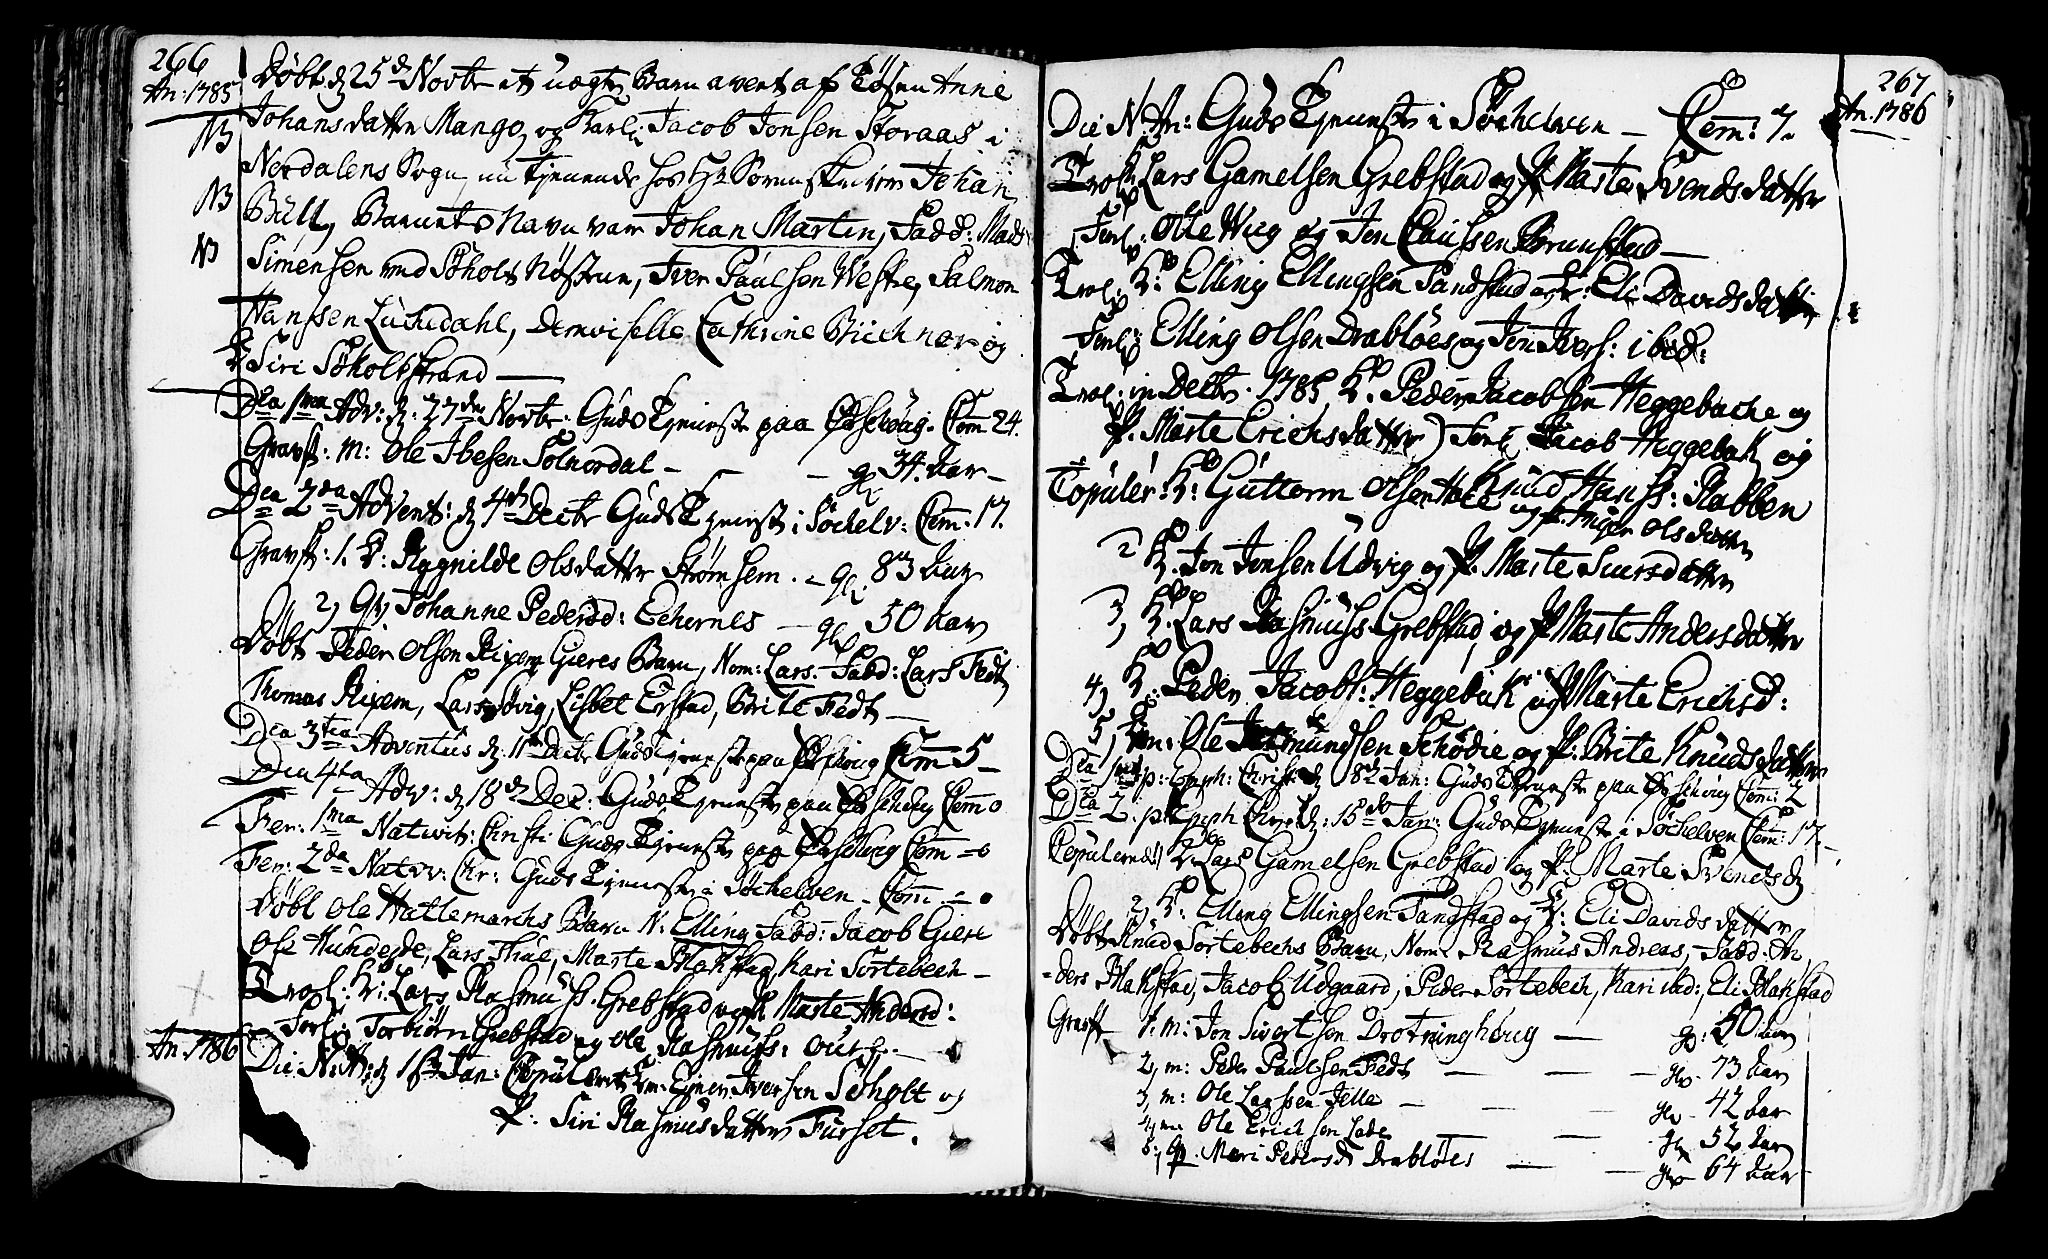 266
An: 1785
Døbt d: 25de Novbr et uægte Barn avlet af Tøsen Anne
NB Johansdatter Mango, og Karl: Jacob Jonsen Storaas i
Nordalens Sogn, nu tjenende hos Hr Sorenskriver Johan
NB Büll, Barnets Navn var Johan Martin, Fadd: Mads
NB Simensen ved Søholt Nøstrene, Iver Paulsen Westre, Salmon
Hanssen Luchedahl, Demoiselle Cathrine Büchner og
P Siri Søholtstrand —
Dca 1ma Adv: d: 27de Novbr: Guds Tjeneste paa Ørschoug. Com 24.
Gravf: m: Ole Ibesen Solnordal — — — gl 34. Aar —
Dca 2da Advent: d 4de Decbr Guds Tjeneste i Søchelv: Com: 17.
Gravf: 1. K: Rygnilde Olsdatter Strømhem. — gl: 83 Aar
2, Q: Johanne Pedersd: Echernes — gl 50 Aar
Døbt Peder Olsen Ripem Gieres Barn, Nom: Lars. Fadd: Lars Fedt
Thomas Ripem, Lars Løvig, Lisbet Erstad, Brite Fedt —
Dca 3tia Adventus d: 11te Decbr Guds Tjeneste paa Ørschoug Com 5 —
Dca 4ta Adv: d 18de Dec: Guds Tjeneste paa Ørschoug Com 0
Fer: 1ma Nativit: Christi Guds Tjeneste paa Ørschoug Com = 0
Fer: 2da Nativ: Chr: Guds Tjeneste i Søchelven — Com: = 0
Døbt Ole Hattemarchs Barn N: Elling Fadd: Jacob Giere
Ole Hundeide, Lars Thue, Marte Blakstad, Kari Sortebech —
Trol: K: Lars Rasmuss. Grebstad og P Marte Andersd:
Forl: Torbiørn Grebstad og Ole Rasmuss: Oure —
An. 1786 Die N: A: d 1ste Jan: Copulerede Em: Ejner Iversen Søholt og
P: Siri Rasmusdatter Furset.
267
An. 1786
Die N. An: Guds Tjeneste i Søchelven — Com: 7.
Trol: K Lars Gamelsen Grebstad og P. Marte Svendsdatter
Forl: Ole Wiig og Jon Clausen Brunstad —
Trol: K: Elling Ellingsen Tandstad og P: Eli Davidsdatter
Forl: Elling Olsen Drabløes og Jon Ivers: ibid:
Trol: in Decbr. 1785 K. Peder Jacobsen Heggebache og
P. Marte Erichsdatter) Forl Jacob Heggebak og
Knud Hanss: Rabben
Copuler: K: Guttorm Olsen Hole og P. Inger Olsdatter
2 K. Jon Jonsen Udvig og P. Marte Siursdatter
3, K. Lars Rasmuss Grebstad, og P Marte Andersdatter
4, K: Peder Jacobs: Heggebak og P Marte Erichsd:
5, Em: Ole Asmundsen Schodie og P: Brite Knudsdatter
Dca 1ma p: Epiph: Christi d 8de Jan: Guds Tjeneste paa Ørschoug Com: 2
Dca 2. p: Epiph Chr: d: 15de Jan: Guds Tjeneste i Søchelven Com: 17 —
Copulerede 1) K Lars Gamelsen Grebstad og P. Marte Svendsd
2, K: Elling Ellingsen Tandstad og P: Eli Davidsdatter
Døbt Knud Sortebechs Barn, Nom: Rasmus Andreas, Fadd: An
=ders Blakstad, Jacob Udgaard, Peder Sortebech, Kari ibid:, Eli Blakstad
Gravft 1. m: Jon Sivertsen Drotninghoug — gl: 50 Aar
2, m: Peder Paulsen Fedt — — — gl. 73 Aar
3, m: Ole Larssen Jelle — — — gl 42 Aar
4, m Ole Erichsen Lade — — gl 52 Aar
5, Q. Mari Pedersd Drabløes — — gl 64 Aar